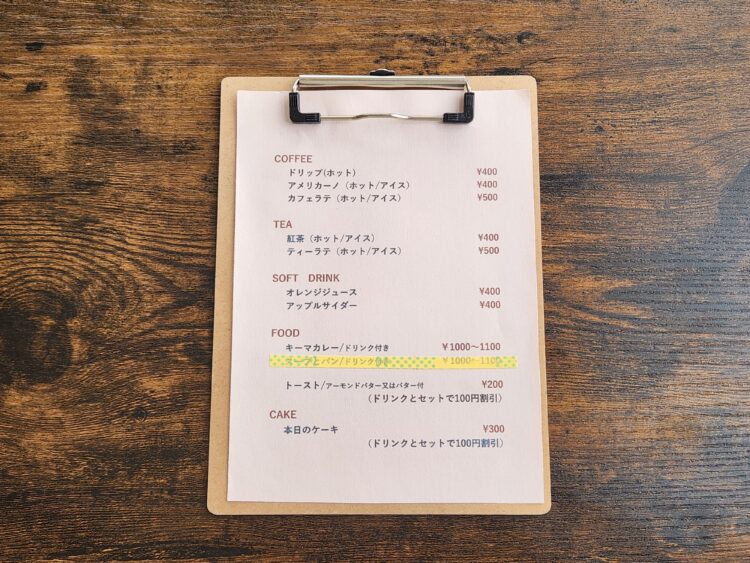 COFFEE
ドリップ(ホット) ¥400
アメリカーノ（ホット/アイス） ¥400
カフェラテ（ホット/アイス） ¥500
TEA
紅茶（ホット/アイス） ¥400
ティーラテ（ホット/アイス） ¥500
SOFT DRINK
オレンジジュース ¥400
アップルサイダー ¥400
FOOD
キーマカレー/ドリンク付き ¥1000～1100
パン/ドリンク付き ¥1000～1100
トースト/アーモンドバター又はバター付 ¥200
（ドリンクとセットで100円割引）
CAKE
本日のケーキ ¥300
（ドリンクとセットで100円割引）